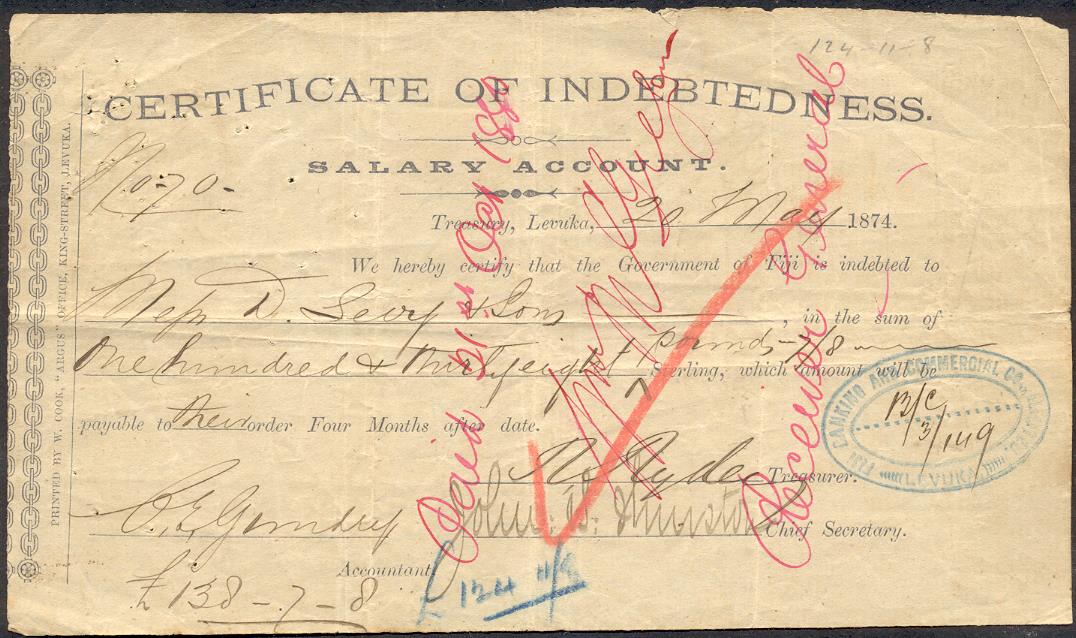 124-11-8
CERTIFICATE OF INDEBTEDNESS.
SALARY ACCOUNT.
No 70-
Treasury, Levuka, 20 May 1874.
We hereby certify that the Government of Fiji is indebted to
Mess D. Levy & Sons, in the sum of
One hundred & thirty eight pounds 7/8
Sterling, which amount will be
payable to their order Four Months after date.
Treasurer.
John B. Thurston Chief Secretary.
Accountant
£138-7-8
£124 11/8
Paid 21st Oct 1880
Receiver General
FIJI BANKING AND COMMERCIAL CO.
LEVUKA
B/C
3/149
PRINTED BY W. COOK, "ARGUS" OFFICE, KING-STREET, LEVUKA.